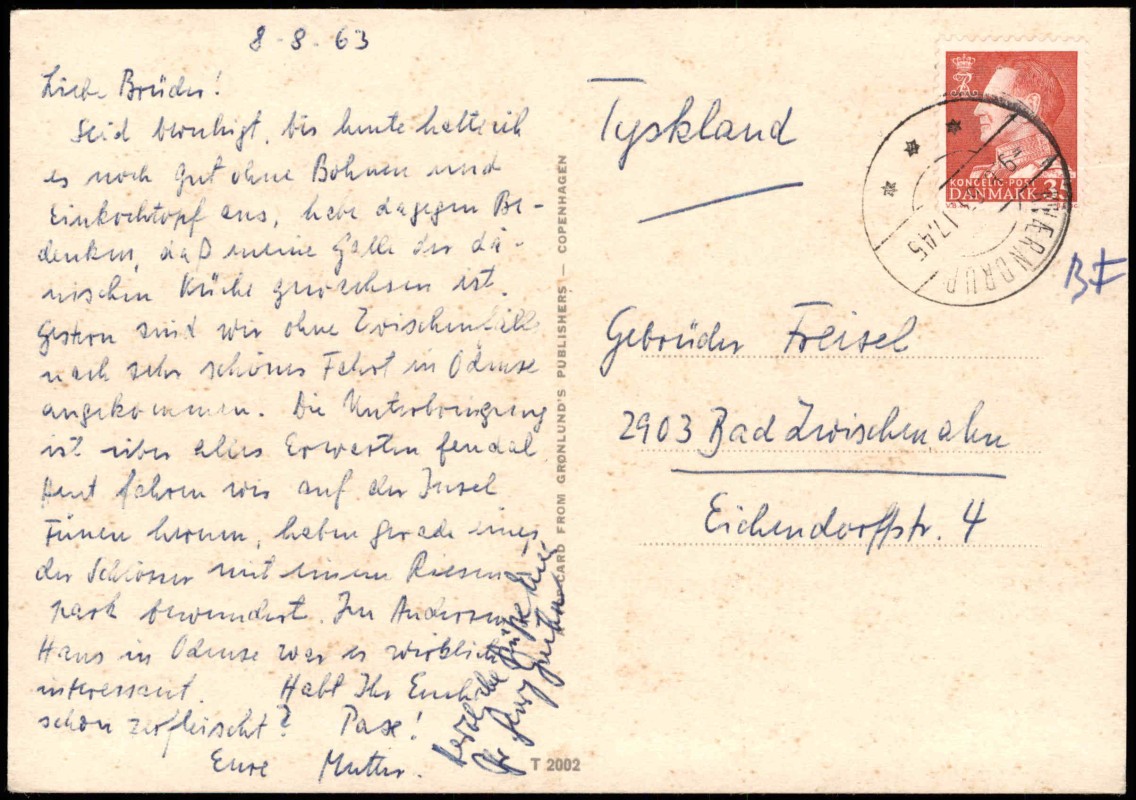 8-8-63
Liebe Brüder!
Seid beruhigt, bis heute halte ich
es noch gut ohne Bohnen und
Einkochtopf aus, habe dagegen Be-
denken, daß meine Galle der dä-
nischen Küche gewachsen ist.
Gestern sind wir ohne Zwischenfälle
nach sehr schöner Fahrt in Odense
angekommen. Die Unterbringung
ist über alles Erwarten feudal
Heut fahren wir auf der Insel
Fünen herum, haben gerade eines
der Schlösser mit einem Riesen-
park bewundert. Im Andersen
Haus in Odense war es wirklich
interessant. Habt Ihr Euch
schon zerfleischt? Pax!
Eure Mutter.
Herzliche Grüße
CARD FROM GRØNLUND'S PUBLISHERS — COPENHAGEN
T 2002
Tyskland
KONGELIG POST
DANMARK 35
17.45
BF
Gebrüder Freisel
2903 Bad Zwischenahn
Eichendorffstr. 4